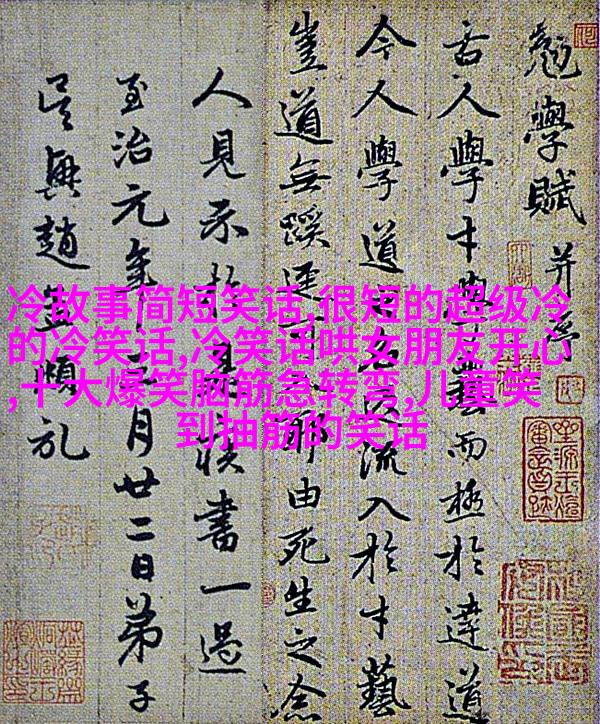 冷故事简短笑话,很短的超级冷
的冷笑话,冷笑话哄女朋友开心
,十大爆笑脑筋急转弯,儿童笑
到抽筋的笑话
勉學賦并序
古人學才藝而極於達道
今人學道流入於才藝
豈道無蹊邪由死生之念
人見示書一過
至治元年月廿二日弟子
吳興趙孟頫